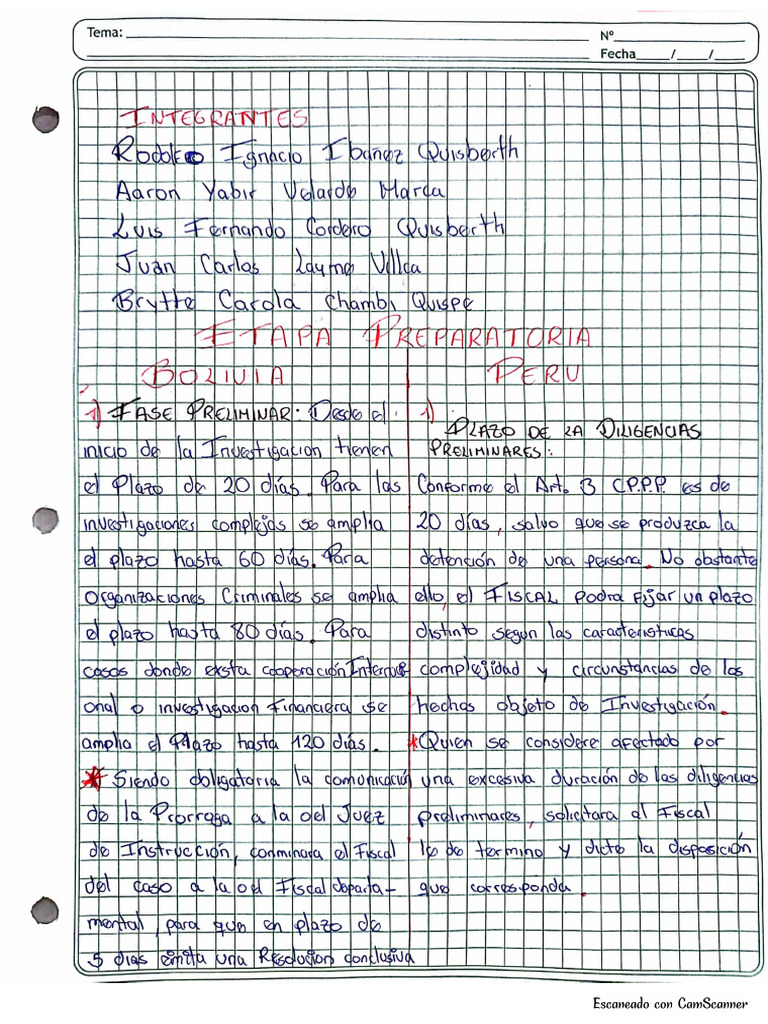 Tema:
Nº
Fecha / /
INTEGRANTES
Rodolfo Ignacio Ibañez Quisberth
Aaron Yabir Velarde Marca
Luis Fernando Cordero Quisberth
Juan Carlos Layme Villca
Brytte Carola Chambi Quispe
ETAPA PREPARATORIA
BOLIVIA
1) FASE PRELIMINAR: Desde el
inicio de la Investigacion tienen
el Plazo de 20 días. Para las
investigaciones complejas se amplia
el plazo hasta 60 días. Para
Organizaciones Criminales se amplia
el plazo hasta 80 días. Para
casos donde exista cooperación Internaci
onal o investigacion Financiera se
amplia el Plazo hasta 120 días.
* Siendo obligatoria la comunicación
de la Prorroga a la o el Juez
de Instrucción, conminara el Fiscal
del caso a la o el Fiscal departa-
mental, para que en plazo de
5 dias emita una Resolucion conclusiva
PERU
1) PLAZO DE LA DILIGENCIAS
PRELIMINARES:
Conforme el Art. 3 C.P.P.P. es de
20 días, salvo que se produzca la
detención de una persona. No obstante
ello, el FISCAL podra fijar un plazo
distinto segun las caracteristicas
complejidad y circunstancias de los
hechos objeto de Investigación.
* Quien se considere afectado por
una excesiva duración de las diligencias
preliminares, solicitara al Fiscal
le de termino y dicte la disposición
que corresponda.
Escaneado con CamScanner